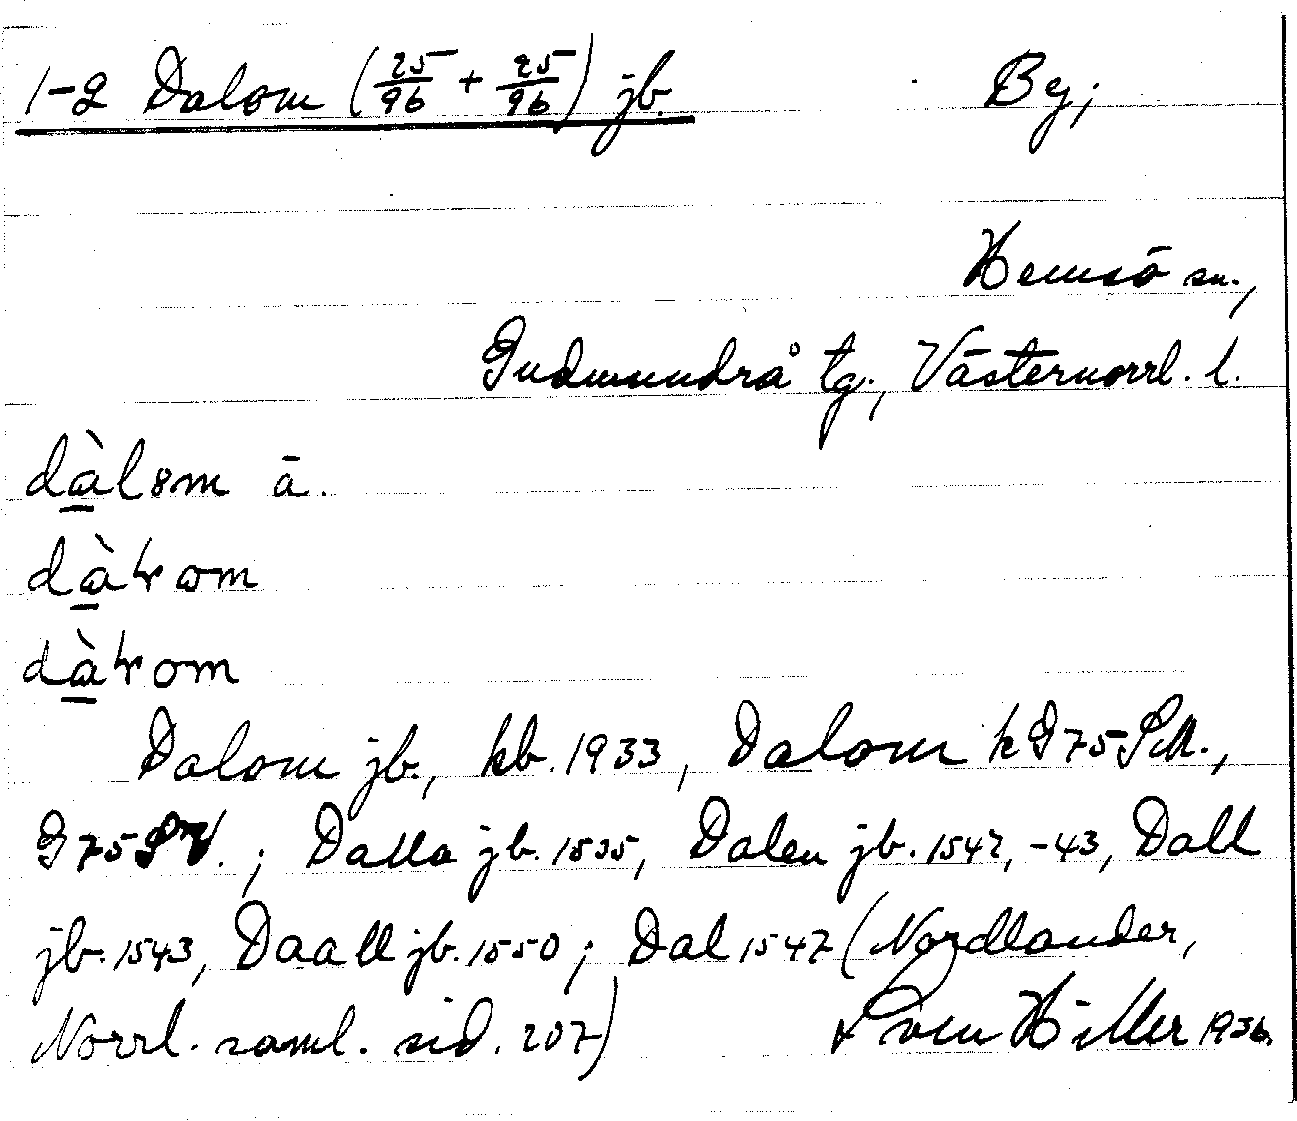 1-2 Dalom (25/96 + 25/96) jb. By;
Hemsö sn.,
Gudmundrå tg., Västernorrl. l.
dàl8m ā.
dàꞎom
dàꞎom
Dalom jb., kb. 1933, Dalom k G 75 SM.,
G 75 SV. ; Dalla jb. 1535, Dalen jb. 1542, -43, Dall
jb. 1543, Daall jb. 1550 ; Dal 1547 (Nordlander,
Norrl. saml. sid. 207) Sven Hiller 1936.